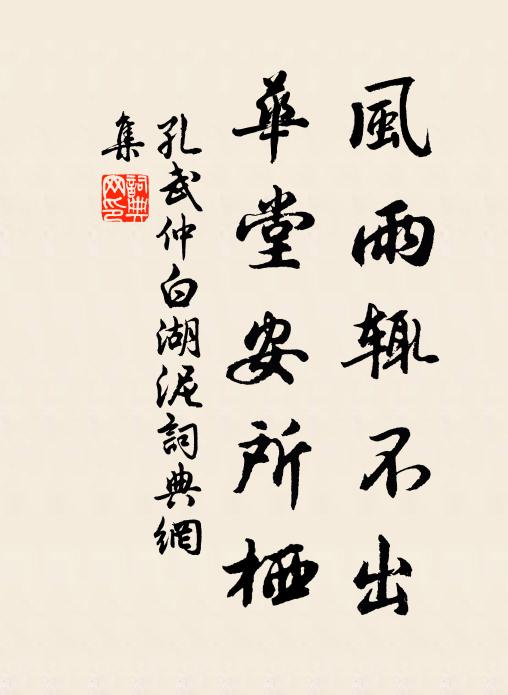 風雨辄不出
華堂安所栖
孔武仲白湖泥詞典網
集
詞典
网印